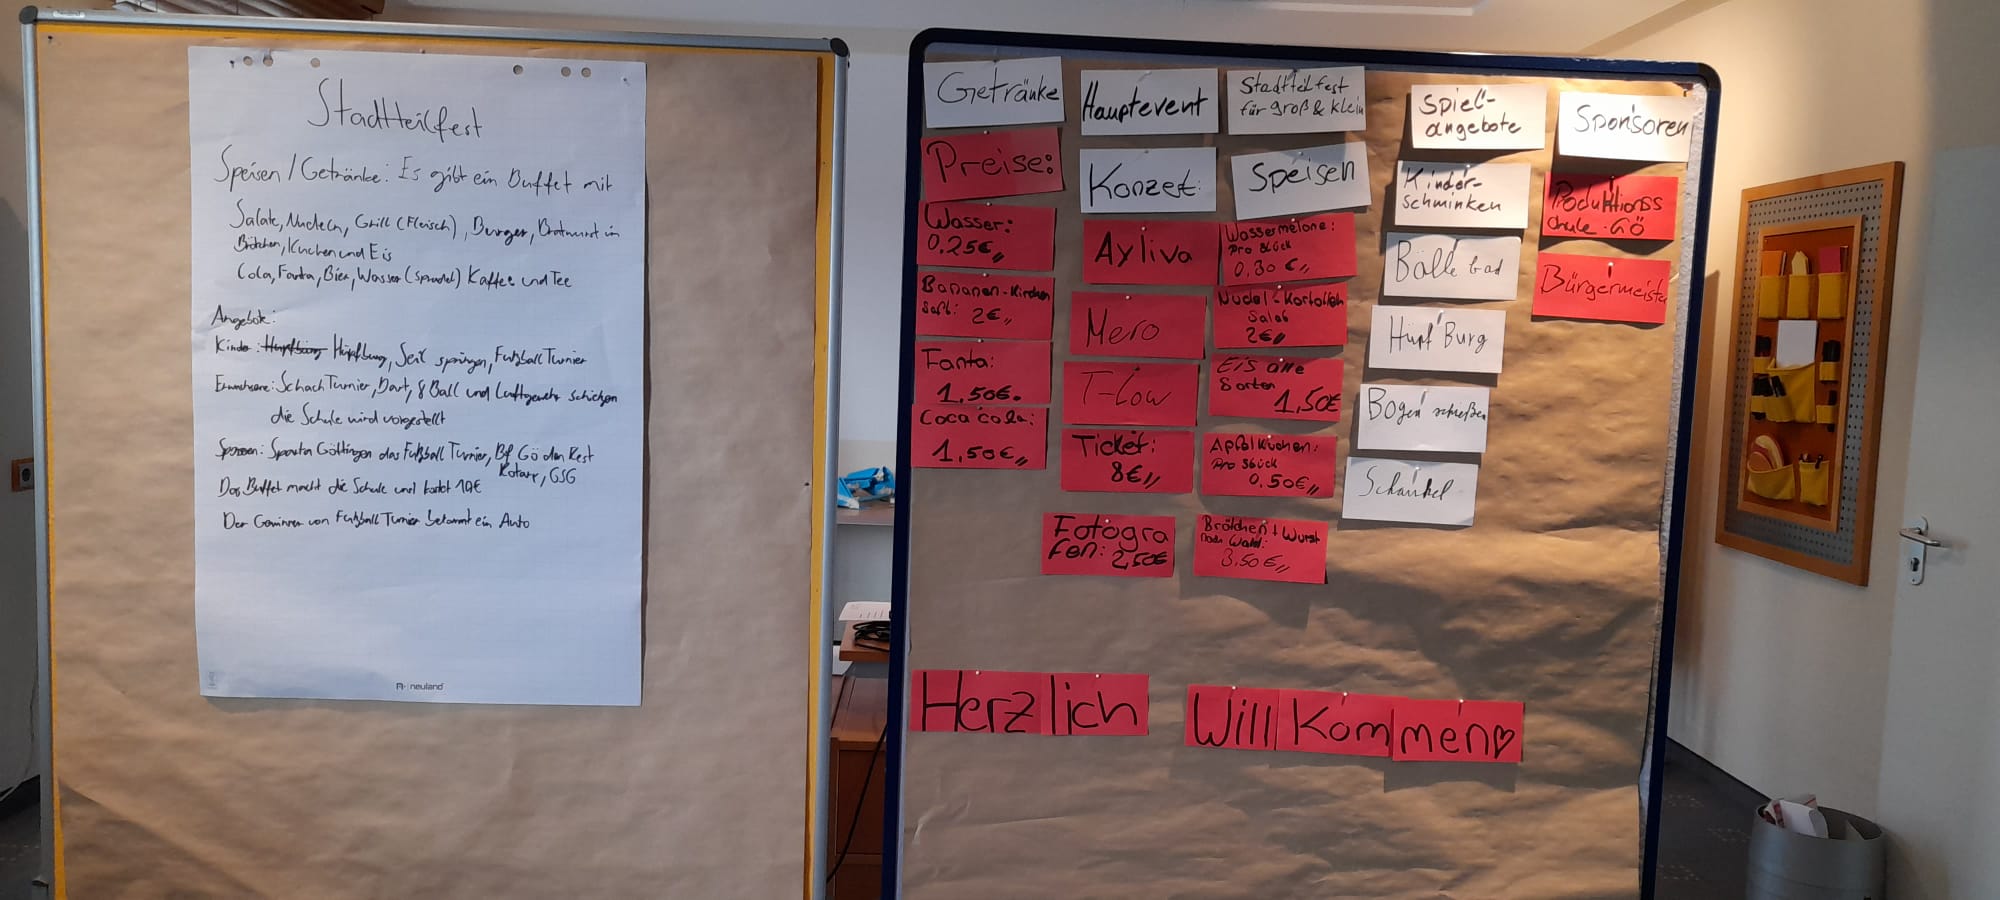 Stadtteilfest
Speisen / Getränke: Es gibt ein Buffet mit
Salate, Nudeln, Grill (Fleisch), Burger, Bratwurst im
Brötchen, Kuchen und Eis
Cola, Fanta, Bier, Wasser (sprudel) Kaffee und Tee
Angebote:
Kinder: Hüpfburg, Seil springen, Fußball Turnier
Erwachsene: Schach Turnier, Dart, 8 Ball und Luftgewehr schießen
die Schule wird vorgestellt
Sparta Göttingen das Fußball Turnier, Bf Gö den Rest
Rotary, GSG
Das Buffet macht die Schule und kostet 10€
Der Gewinner von Fußball Turnier bekommt ein Auto
neuland
Getränke
Preise:
Wasser:
0,25€,,
Bananen-Kirschen
Saft: 2€,,
Fanta:
1,50€.
Coca cola:
1,50€,,
Hauptevent
Konzert:
Ayliva
Mero
T-Low
Ticket:
8€,,
Fotogra
fen: 2,50€
Stadtteilfest
für groß & klein
Speisen
Wassermelone:
Pro Stück
0,30 €,,
Nudel-Kartoffeln
Salat
2€,,
Eis alle
Sorten
1,50€
Apfelkuchen:
Pro Stück
0,50€,,
Brötchen + Wurst
nach Wahl:
3,50€,,
Spiel-
angebote
Kinder-
schminken
Bälle bad
Hüpf Burg
Bogen schießen
Schaukel
Sponsoren
Produktionss
chule. GÖ
Bürgermeister
Herzlich Willkommen♡